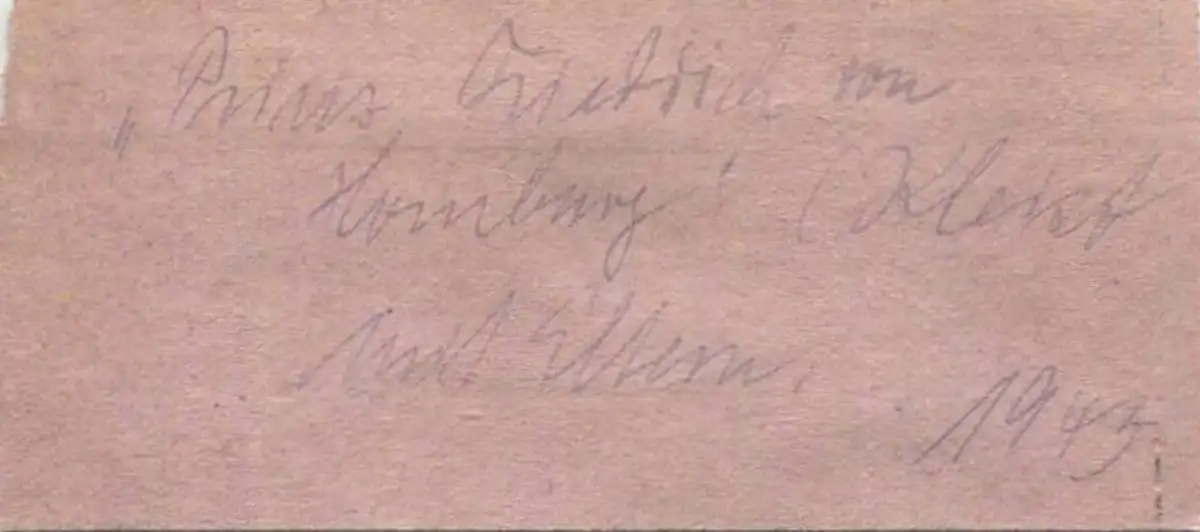 „Prinz Friedrich von
Homburg" (Kleist
mit Eltern.
1943